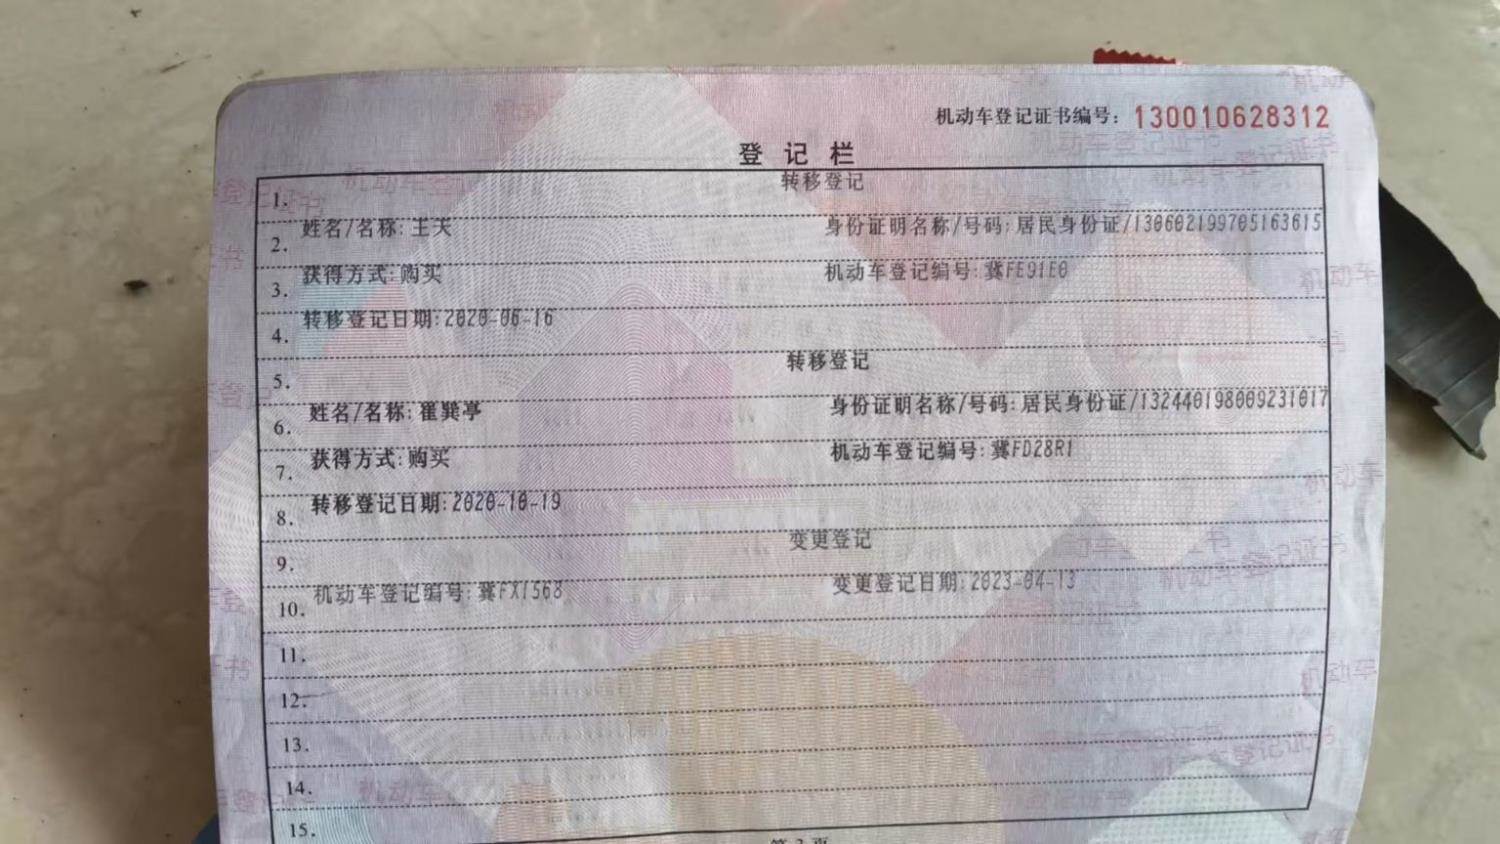 机动车登记证书编号：130010628312
登 记 栏
1. 转移登记
2. 姓名/名称:王天 身份证明名称/号码:居民身份证/130602199705163615
3. 获得方式:购买 机动车登记编号:冀FE91E0
4. 转移登记日期:2020-06-16
5. 转移登记
6. 姓名/名称:崔巽亭 身份证明名称/号码:居民身份证/132440198009231017
7. 获得方式:购买 机动车登记编号:冀FD28R1
8. 转移登记日期:2020-10-19
9. 变更登记
10. 机动车登记编号:冀FX1568 变更登记日期:2023-04-13
11.
12.
13.
14.
15.